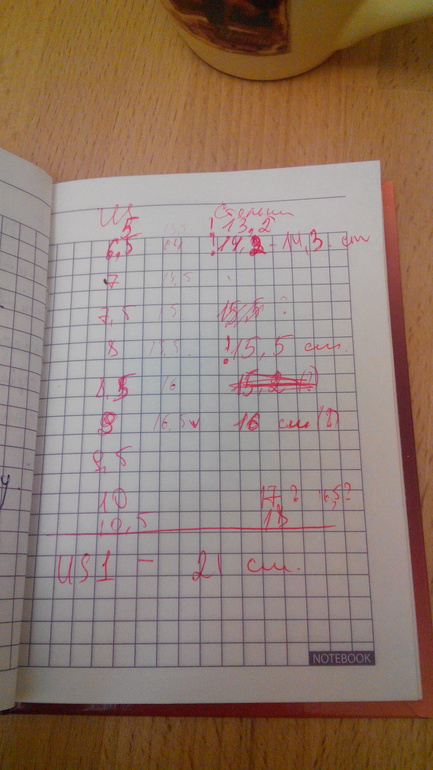 US Стопы
5 13,5 ! 13,2
6,5 14 ! 14,2 - 14,3 cm
7 14,5
7,5 15 15,5 ?
8 15,5 ! 15,5 cm.
8.5 16 15,2 (?)
9 16,5 16 cm (?)
9,5
10 17 ? 16,5?
10,5 18
US1 - 21 cm.
NOTEBOOK